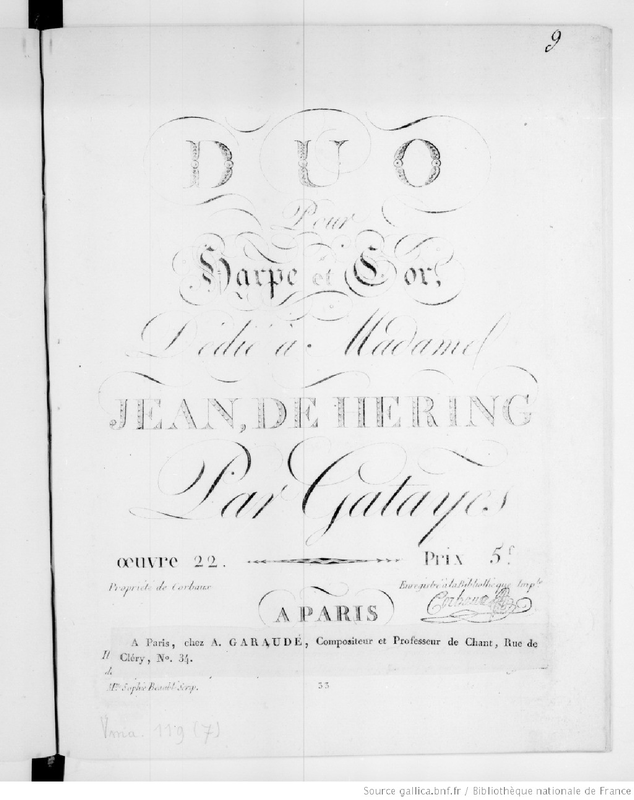 9
DUO
Pour
Harpe et Cor,
Dédié à Madame
JEAN, DE HERING
Par Gatayes
œuvre 22. Prix 5.f
Propriété de Corbaux Enregistré à la Bibliothèque Imp.le
Corbaux
A PARIS
A Paris, chez A. GARAUDÉ, Compositeur et Professeur de Chant, Rue de
Cléry, No. 34.
33
Vma. 119 (7)
Source gallica.bnf.fr / Bibliothèque nationale de France